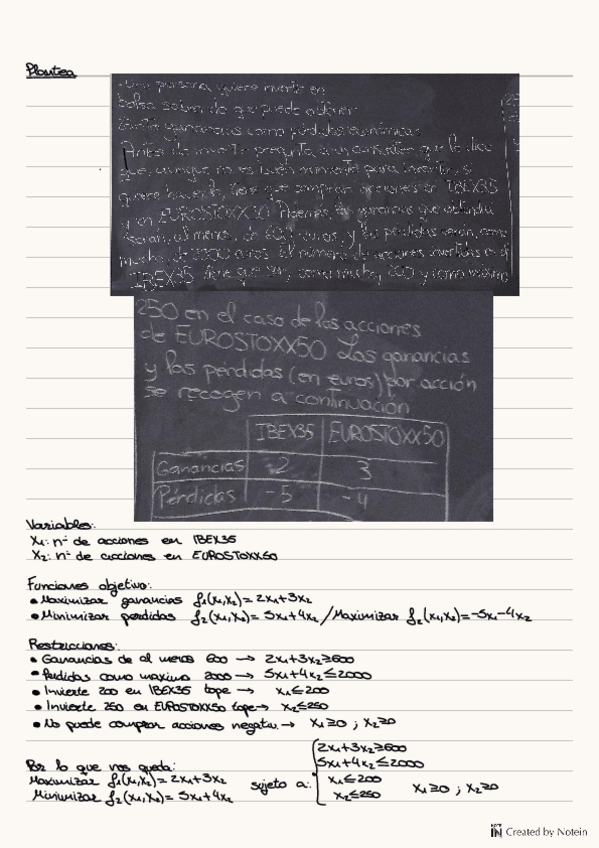 Plantea
Una persona quiere invertir en
bolsa sabiendo que puede obtener
tanto ganancias como pérdidas económicas
Antes de invertir pregunta a un consultor que le dice
que, aunque no es buen momento para invertir, si
quiere hacerlo, tiene que comprar acciones en IBEX35
y en EUROSTOXX50 Además, las ganancias que obtendría
serían, al menos, de 600 euros, y las pérdidas serán, como
mucho, de 2000 euros. El número de acciones invertidas en el
IBEX35 tiene que ser, como mucho, 200 y como máximo
250 en el caso de las acciones
de EUROSTOXX50 Las ganancias
y las pérdidas (en euros) por acción
se recogen a continuación
IBEX35 EUROSTOXX50
Ganancias 2 3
Pérdidas -5 -4
Variables:
x₁: nº de acciones en IBEX35
x₂: nº de acciones en EUROSTOXX50
Funciones objetivo:
• Maximizar ganancias f₁(x₁,x₂)= 2x₁+3x₂
• Minimizar perdidas f₂(x₁,x₂)= 5x₁+4x₂ / Maximizar f₂(x₁,x₂)= -5x₁-4x₂
Restricciones:
• Ganancias de al menos 600 → 2x₁+3x₂≥600
• Perdidas como maximo 2000 → 5x₁+4x₂≤2000
• Invierte 200 en IBEX35 tope → x₁≤200
• Invierte 250 en EUROSTOXX50 tope → x₂≤250
• No puede comprar acciones negativ. → x₁≥0 ; x₂≥0
Por lo que nos queda:
Maximizar f₁(x₁,x₂)= 2x₁+3x₂
Minimizar f₂(x₁,x₂)= 5x₁+4x₂
sujeto a:
2x₁+3x₂≥600
5x₁+4x₂≤2000
x₁≤200
x₂≤250
x₁≥0 ; x₂≥0
NOTE IN Created by Notein